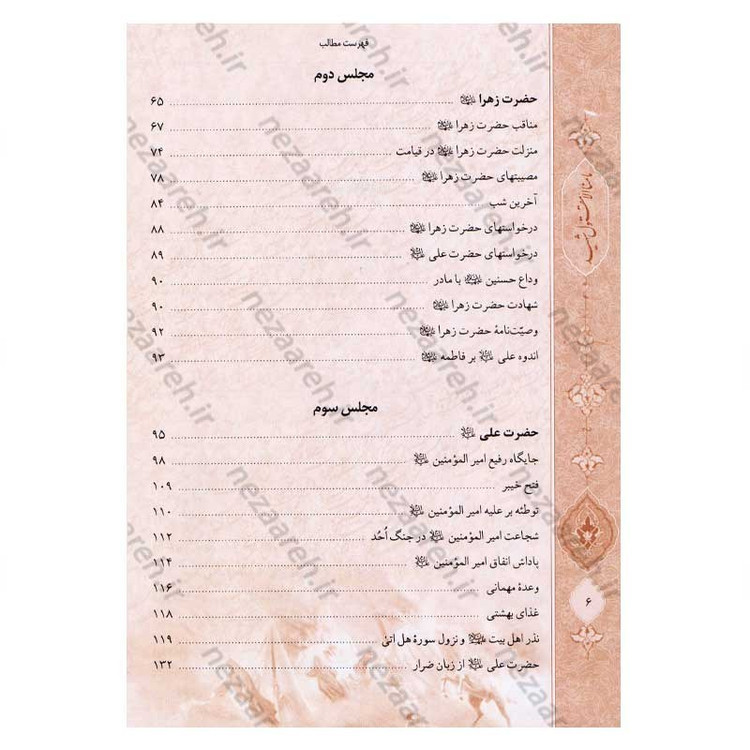 فهرست مطالب
مجلس دوم
حضرت زهرا ........ ۶۵
مناقب حضرت زهرا ........ ۶۷
منزلت حضرت زهرا در قیامت ........ ۷۴
مصیبتهای حضرت زهرا ........ ۷۸
آخرین شب ........ ۸۴
درخواستهای حضرت زهرا ........ ۸۸
درخواستهای حضرت علی ........ ۸۹
وداع حسنین با مادر ........ ۹۰
شهادت حضرت زهرا ........ ۹۰
وصیّت‌نامۀ حضرت زهرا ........ ۹۲
اندوه علی بر فاطمه ........ ۹۳
مجلس سوم
حضرت علی ........ ۹۵
جایگاه رفیع امیر المؤمنین ........ ۹۸
فتح خیبر ........ ۱۰۹
توطئه بر علیه امیر المؤمنین ........ ۱۱۰
شجاعت امیر المؤمنین در جنگ اُحُد ........ ۱۱۲
پاداش انفاق امیر المؤمنین ........ ۱۱۴
وعدۀ مهمانی ........ ۱۱۶
غذای بهشتی ........ ۱۱۸
نذر اهل بیت و نزول سورۀ هل اتیٰ ........ ۱۱۹
حضرت علی از زبان ضرار ........ ۱۳۲
۶
nezaareh.ir